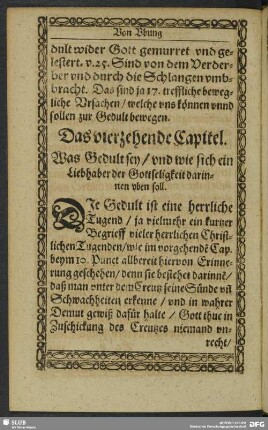 Von Vbung
dult wider Gott gemurret vnd ge-
lestert. v.25. Sind von dem Verder-
ber vnd durch die Schlangen vmb-
bracht. Das sind ja 17. treffliche beweg-
liche Vrsachen / welche vns können vnnd
sollen zur Gedult bewegen.
Das vierzehende Capitel.
Was Gedult sey / vnd wie sich ein
Liebhaber der Gottseligkeit darin-
nen vben soll.
DIe Gedult ist eine herrliche
Tugend / ja vielmehr ein kurtzer
Begrieff vieler herrlichen Christ-
lichen Tugenden / wie im vorgehendē Cap.
beym 10. Punct allbereit hiervon Erinne-
rung geschehen / denn sie bestehet darinnē /
daß man vnter dem Creutz seine Sünde vñ
Schwachheiten erkenne / vnd in wahrer
Demut gewiß dafür halte / Gott thue in
Zuschickung des Creutzes niemand vn-
recht /
SLUB
DFG